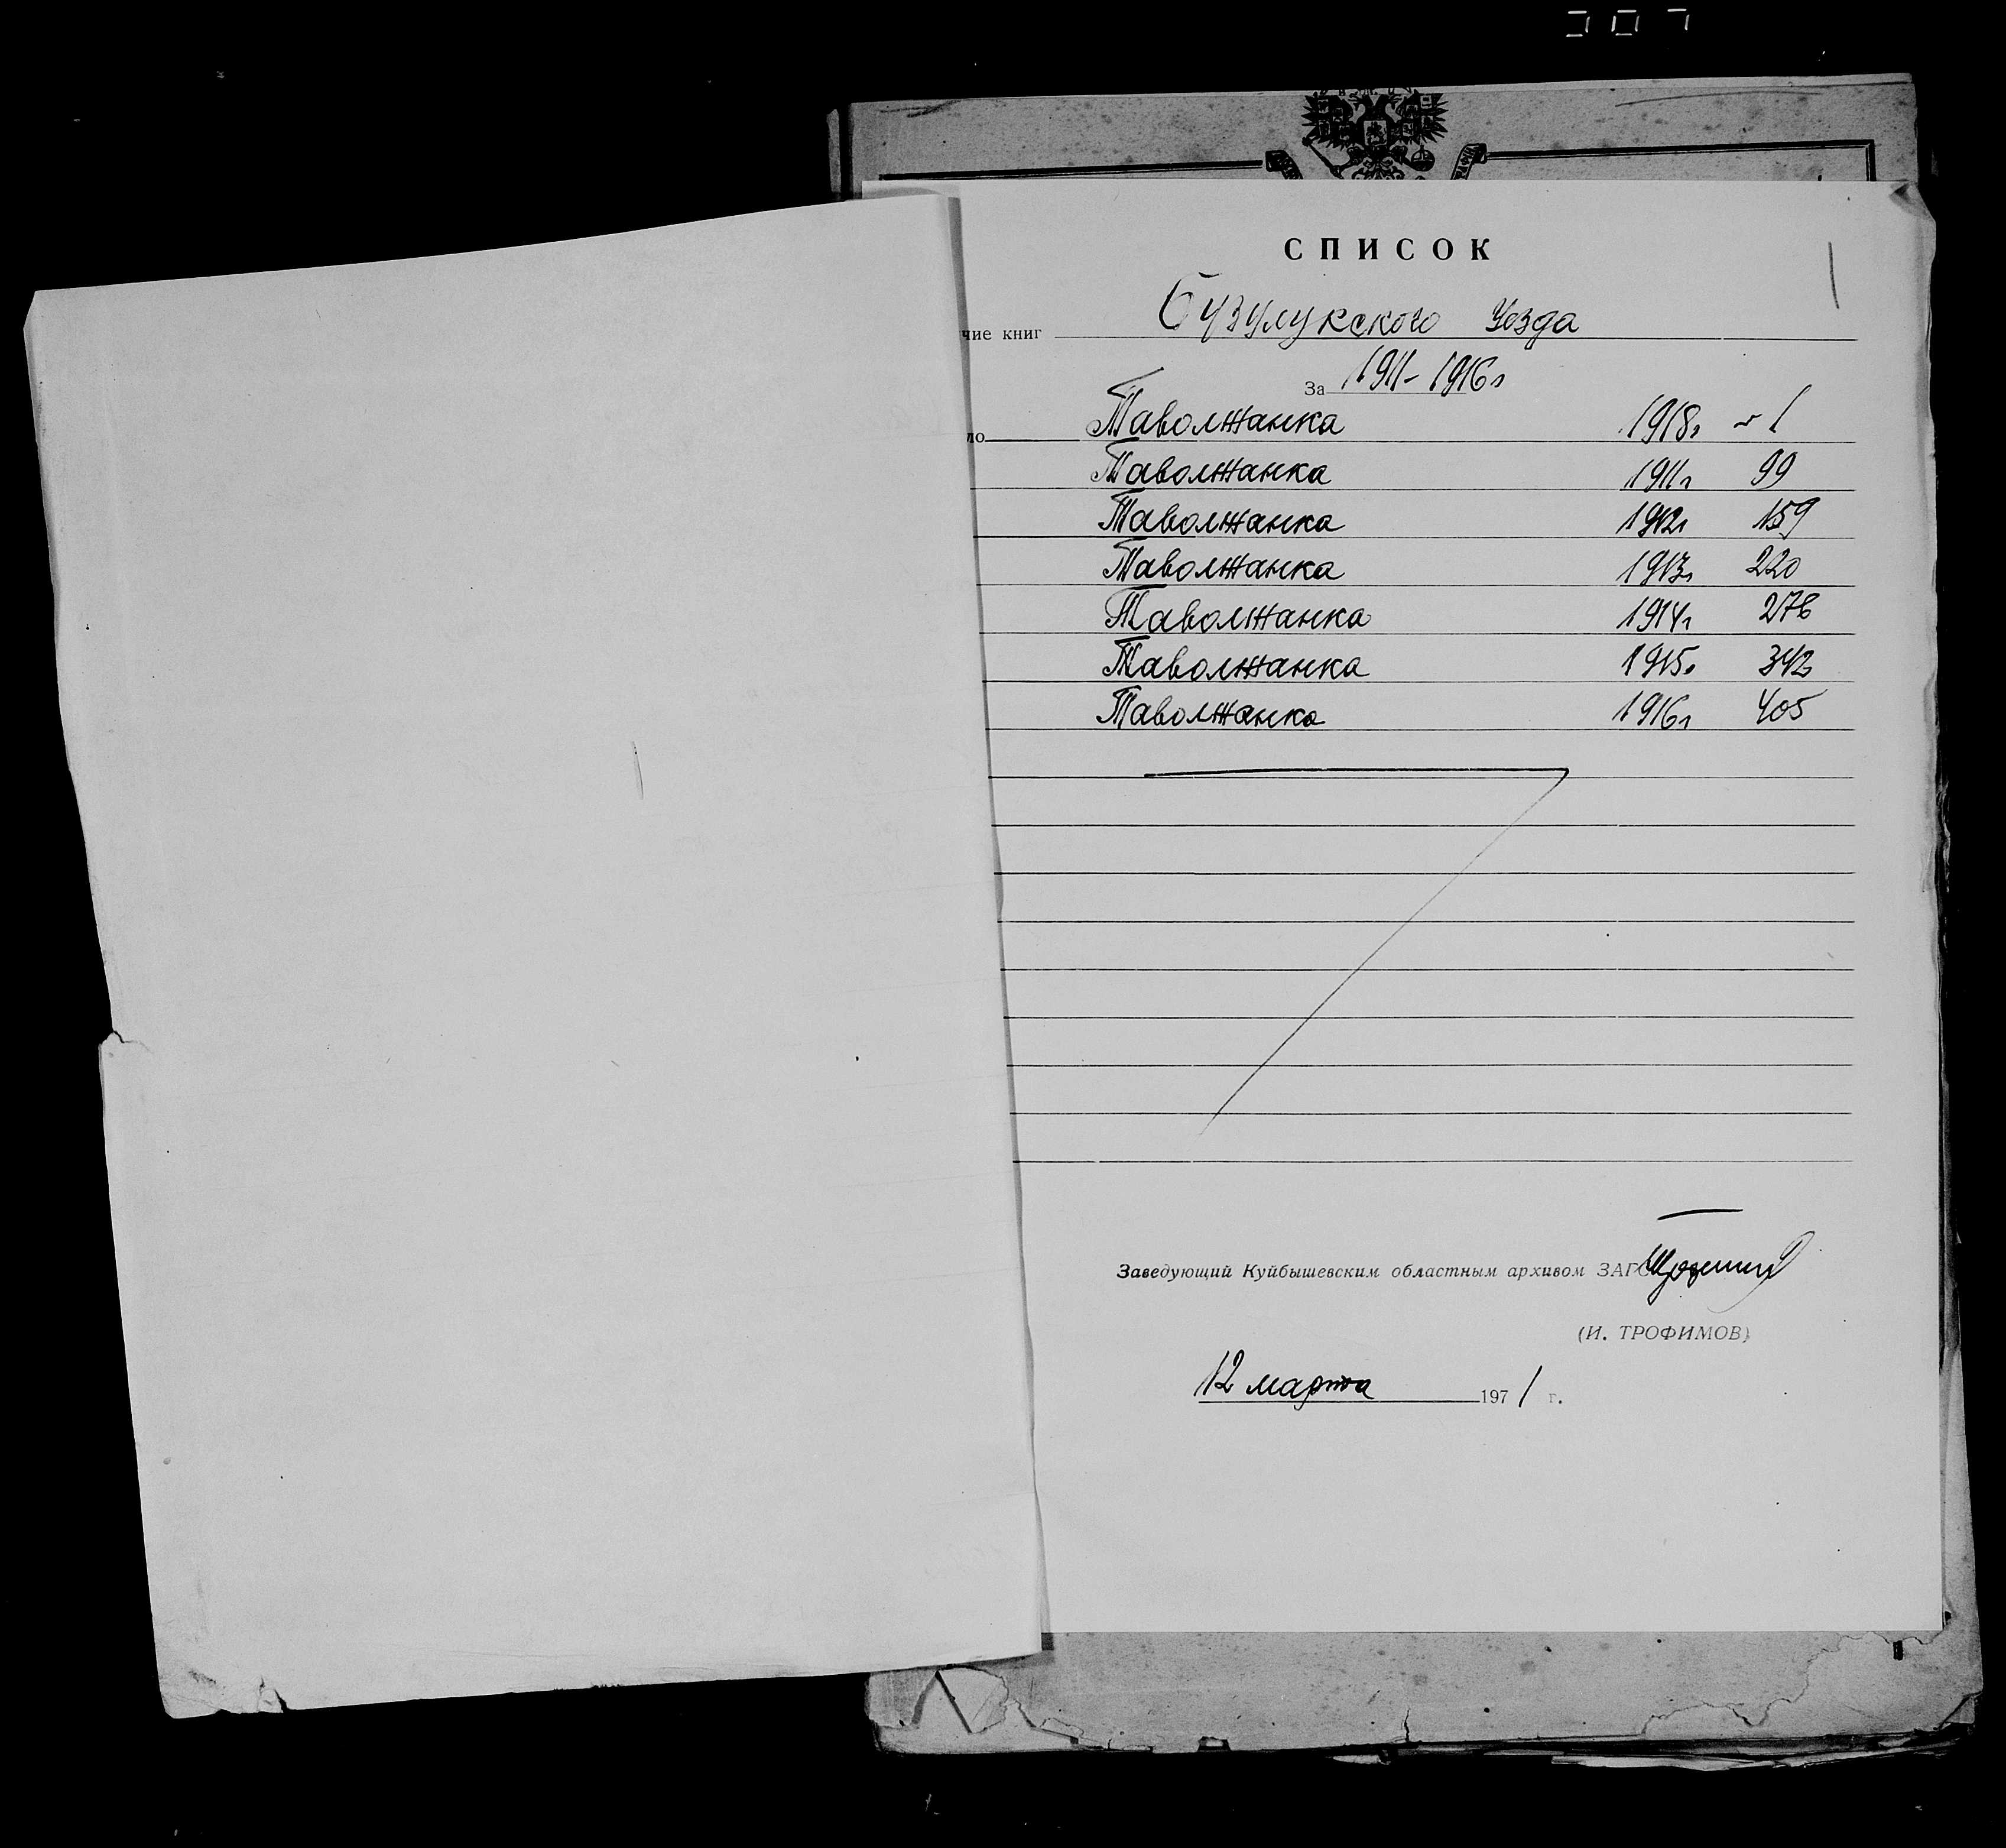 СПИСОК
чие книг Бузулукского Уезда
За 1911-1916г
ло Таволжанка 1918г 1
Таволжанка 1911г 99
Таволжанка 1912г 159
Таволжанка 1913г 220
Таволжанка 1914г 276
Таволжанка 1915г 342
Таволжанка 1916г 405
Заведующий Куйбышевским областным архивом ЗАГС
(И. ТРОФИМОВ)
12 марта 1971 г.